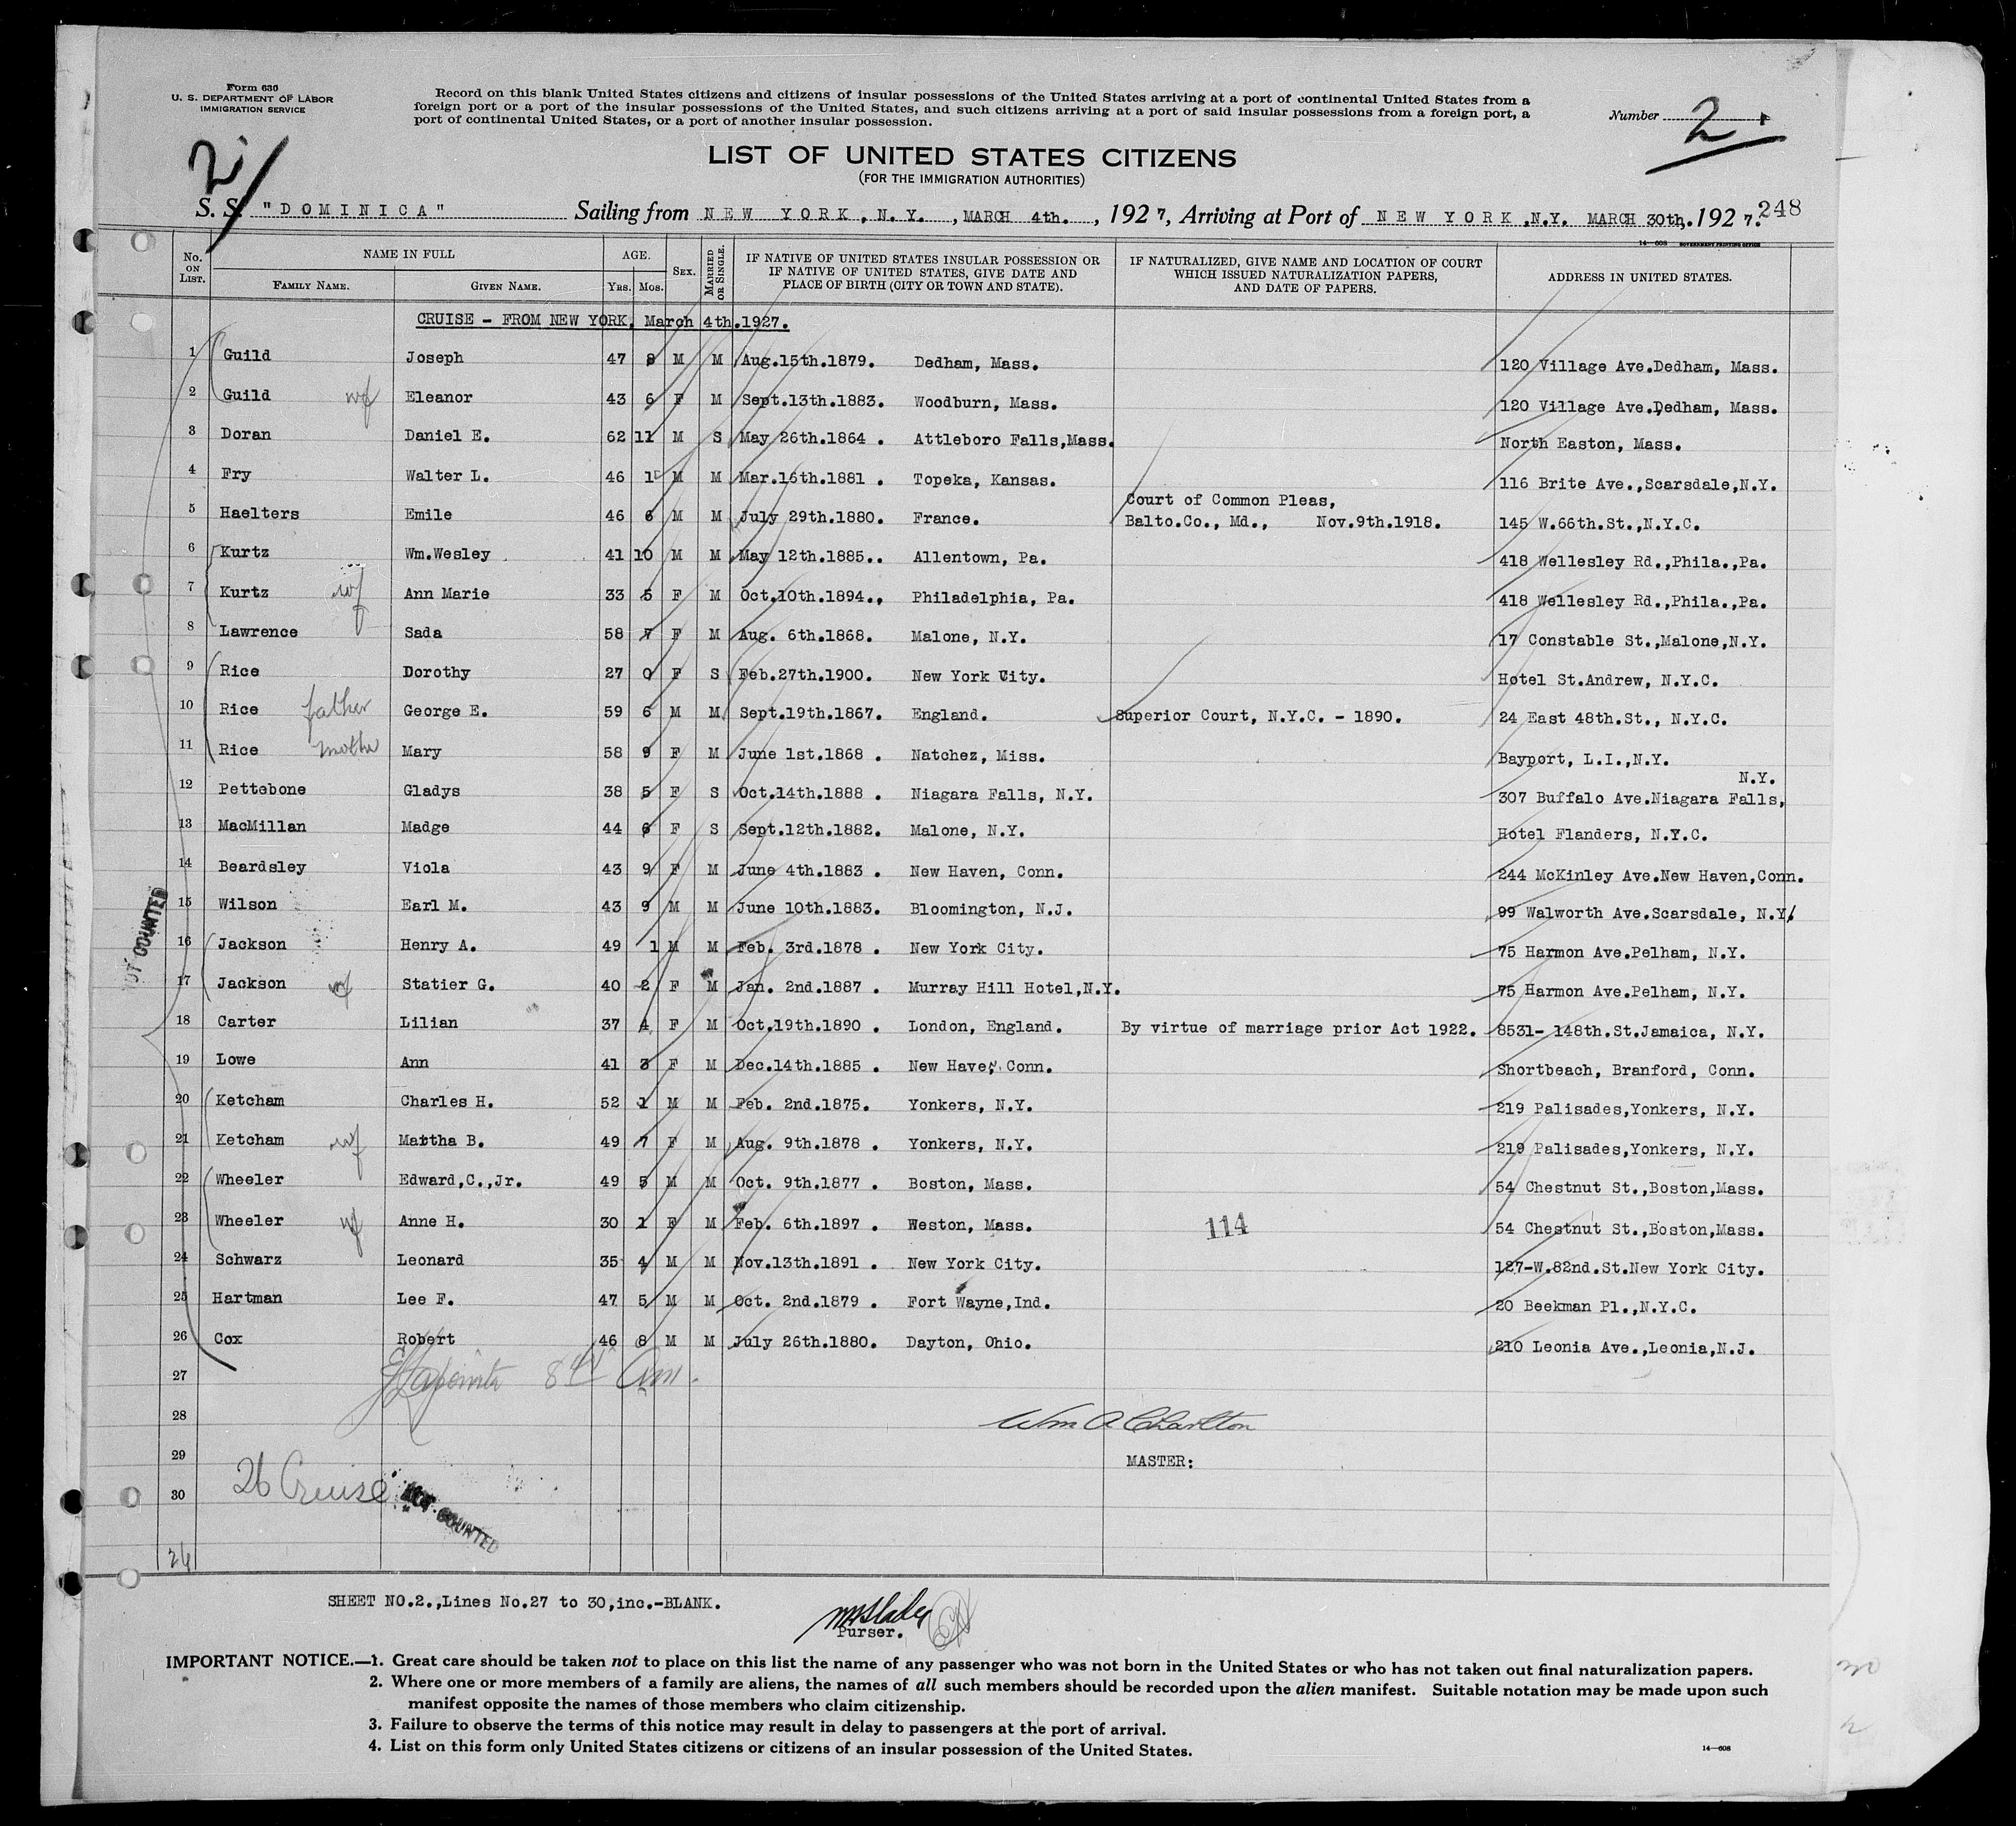 Form 630
U. S. DEPARTMENT OF LABOR
IMMIGRATION SERVICE
Record on this blank United States citizens and citizens of insular possessions of the United States arriving at a port of continental United States from a
foreign port or a port of the insular possessions of the United States, and such citizens arriving at a port of said insular possessions from a foreign port, a
port of continental United States, or a port of another insular possession.
Number 2
2
LIST OF UNITED STATES CITIZENS
(FOR THE IMMIGRATION AUTHORITIES)
S. S. "DOMINICA" Sailing from NEW YORK, N.Y., MARCH 4th., 1927, Arriving at Port of NEW YORK, N.Y. MARCH 30th,. 1927. 248
14-608 GOVERNMENT PRINTING OFFICE
No. ON LIST. NAME IN FULL FAMILY NAME. GIVEN NAME. AGE. YRS. MOS. SEX. MARRIED OR SINGLE. IF NATIVE OF UNITED STATES INSULAR POSSESSION OR IF NATIVE OF UNITED STATES, GIVE DATE AND PLACE OF BIRTH (CITY OR TOWN AND STATE). IF NATURALIZED, GIVE NAME AND LOCATION OF COURT WHICH ISSUED NATURALIZATION PAPERS, AND DATE OF PAPERS. ADDRESS IN UNITED STATES.
CRUISE - FROM NEW YORK, March 4th.1927.
1 Guild Joseph 47 8 M M Aug.15th.1879. Dedham, Mass. 120 Village Ave.Dedham, Mass.
2 Guild wf Eleanor 43 6 F M Sept.13th.1883. Woodburn, Mass. 120 Village Ave.Dedham, Mass.
3 Doran Daniel E. 62 11 M S May 26th.1864 . Attleboro Falls,Mass. North Easton, Mass.
4 Fry Walter L. 46 1 M M Mar.16th.1881 . Topeka, Kansas. 116 Brite Ave.,Scarsdale,N.Y.
5 Haelters Emile 46 6 M M July 29th.1880. France. Court of Common Pleas, Balto.Co., Md., Nov.9th.1918. 145 W.66th.St.,N.Y.C.
6 Kurtz Wm.Wesley 41 10 M M May 12th.1885.. Allentown, Pa. 418 Wellesley Rd.,Phila.,Pa.
7 Kurtz wf Ann Marie 33 5 F M Oct.10th.1894., Philadelphia, Pa. 418 Wellesley Rd.,Phila.,Pa.
8 Lawrence Sada 58 7 F M Aug. 6th.1868. Malone, N.Y. 17 Constable St.,Malone,N.Y.
9 Rice Dorothy 27 0 F S Feb.27th.1900. New York City. Hotel St.Andrew, N.Y.C.
10 Rice father George E. 59 6 M M Sept.19th.1867. England. Superior Court, N.Y.C. - 1890. 24 East 48th.St., N.Y.C.
11 Rice mother Mary 58 9 F M June 1st.1868 . Natchez, Miss. Bayport, L.I.,N.Y.
12 Pettebone Gladys 38 5 F S Oct.14th.1888 . Niagara Falls, N.Y. 307 Buffalo Ave.Niagara Falls, N.Y.
13 MacMillan Madge 44 6 F S Sept.12th.1882. Malone, N.Y. Hotel Flanders, N.Y.C.
14 Beardsley Viola 43 9 F M June 4th.1883 . New Haven, Conn. 244 McKinley Ave.New Haven,Conn.
15 Wilson Earl M. 43 9 M M June 10th.1883. Bloomington, N.J. 99 Walworth Ave.Scarsdale, N.Y.
16 Jackson Henry A. 49 1 M M Feb. 3rd.1878 . New York City. 75 Harmon Ave.Pelham, N.Y.
17 Jackson wf Statier G. 40 2 F M Jan. 2nd.1887 . Murray Hill Hotel,N.Y. 75 Harmon Ave.Pelham, N.Y.
18 Carter Lilian 37 4 F M Oct.19th.1890 . London, England. By virtue of marriage prior Act 1922. 8531- 148th.St.Jamaica, N.Y.
19 Lowe Ann 41 3 F M Dec.14th.1885 . New Haven, Conn. Shortbeach, Branford, Conn.
20 Ketcham Charles H. 52 1 M M Feb. 2nd.1875. Yonkers, N.Y. 219 Palisades,Yonkers, N.Y.
21 Ketcham wf Martha B. 49 7 F M Aug. 9th.1878 . Yonkers, N.Y. 219 Palisades,Yonkers, N.Y.
22 Wheeler Edward,C.,Jr. 49 5 M M Oct. 9th.1877 . Boston, Mass. 54 Chestnut St.,Boston,Mass.
23 Wheeler wf Anne H. 30 1 F M Feb. 6th.1897 . Weston, Mass. 114 54 Chestnut St.,Boston,Mass.
24 Schwarz Leonard 35 4 M M Nov.13th.1891 . New York City. 127-W.82nd.St.New York City.
25 Hartman Lee F. 47 5 M M Oct. 2nd.1879 . Fort Wayne,Ind. 20 Beekman Pl.,N.Y.C.
26 Cox Robert 46 8 M M July 26th.1880. Dayton, Ohio. 210 Leonia Ave.,Leonia,N.J.
NOT COUNTED
27
28 Wm A Charlton
29 MASTER:
30
26 Cruise NOT COUNTED
26
SHEET NO.2.,Lines No.27 to 30,inc.-BLANK.
Purser.
IMPORTANT NOTICE.—1. Great care should be taken not to place on this list the name of any passenger who was not born in the United States or who has not taken out final naturalization papers.
2. Where one or more members of a family are aliens, the names of all such members should be recorded upon the alien manifest. Suitable notation may be made upon such
manifest opposite the names of those members who claim citizenship.
3. Failure to observe the terms of this notice may result in delay to passengers at the port of arrival.
4. List on this form only United States citizens or citizens of an insular possession of the United States.
14—608